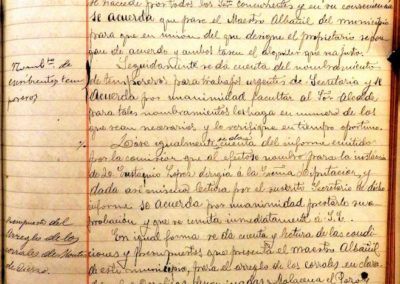 se accede por todos los Srs. concurrentes y en su consecuencia
se acuerda que pase el Maestro Albañil del municipio
para que en union del que designe el propietario se pongan
de acuerdo y ambos tasen el
Nombto. de
escribientes temporeros
Seguidamente se da cuenta del nombramiento
de temporeros para trabajos urgentes de Secretaria y se
acuerda por unanimidad facultar al Sor. Alcalde
para tales nombramientos los haga en numero de los
que sean necesarios y lo verifique en tiempo oportuno.
Dose igualmente cuenta del informe emitido
por la comision que al efecto se nombró para la instancia
de D. Eustaquio dirigia á la Excma. Diputacion, y
dada asi misma lectura por el suscrito Secretario de dicho
informe se acuerda por unanimidad prestarle su
aprobacion y que se remita inmediatamente á S.E.
Presupuesto del
arreglo de los
corrales de
En igual forma se da cuenta y lectura de las condi-
ciones y presupuestos que presenta el maestro Albañil
de este municipio, para el arreglo de los corrales